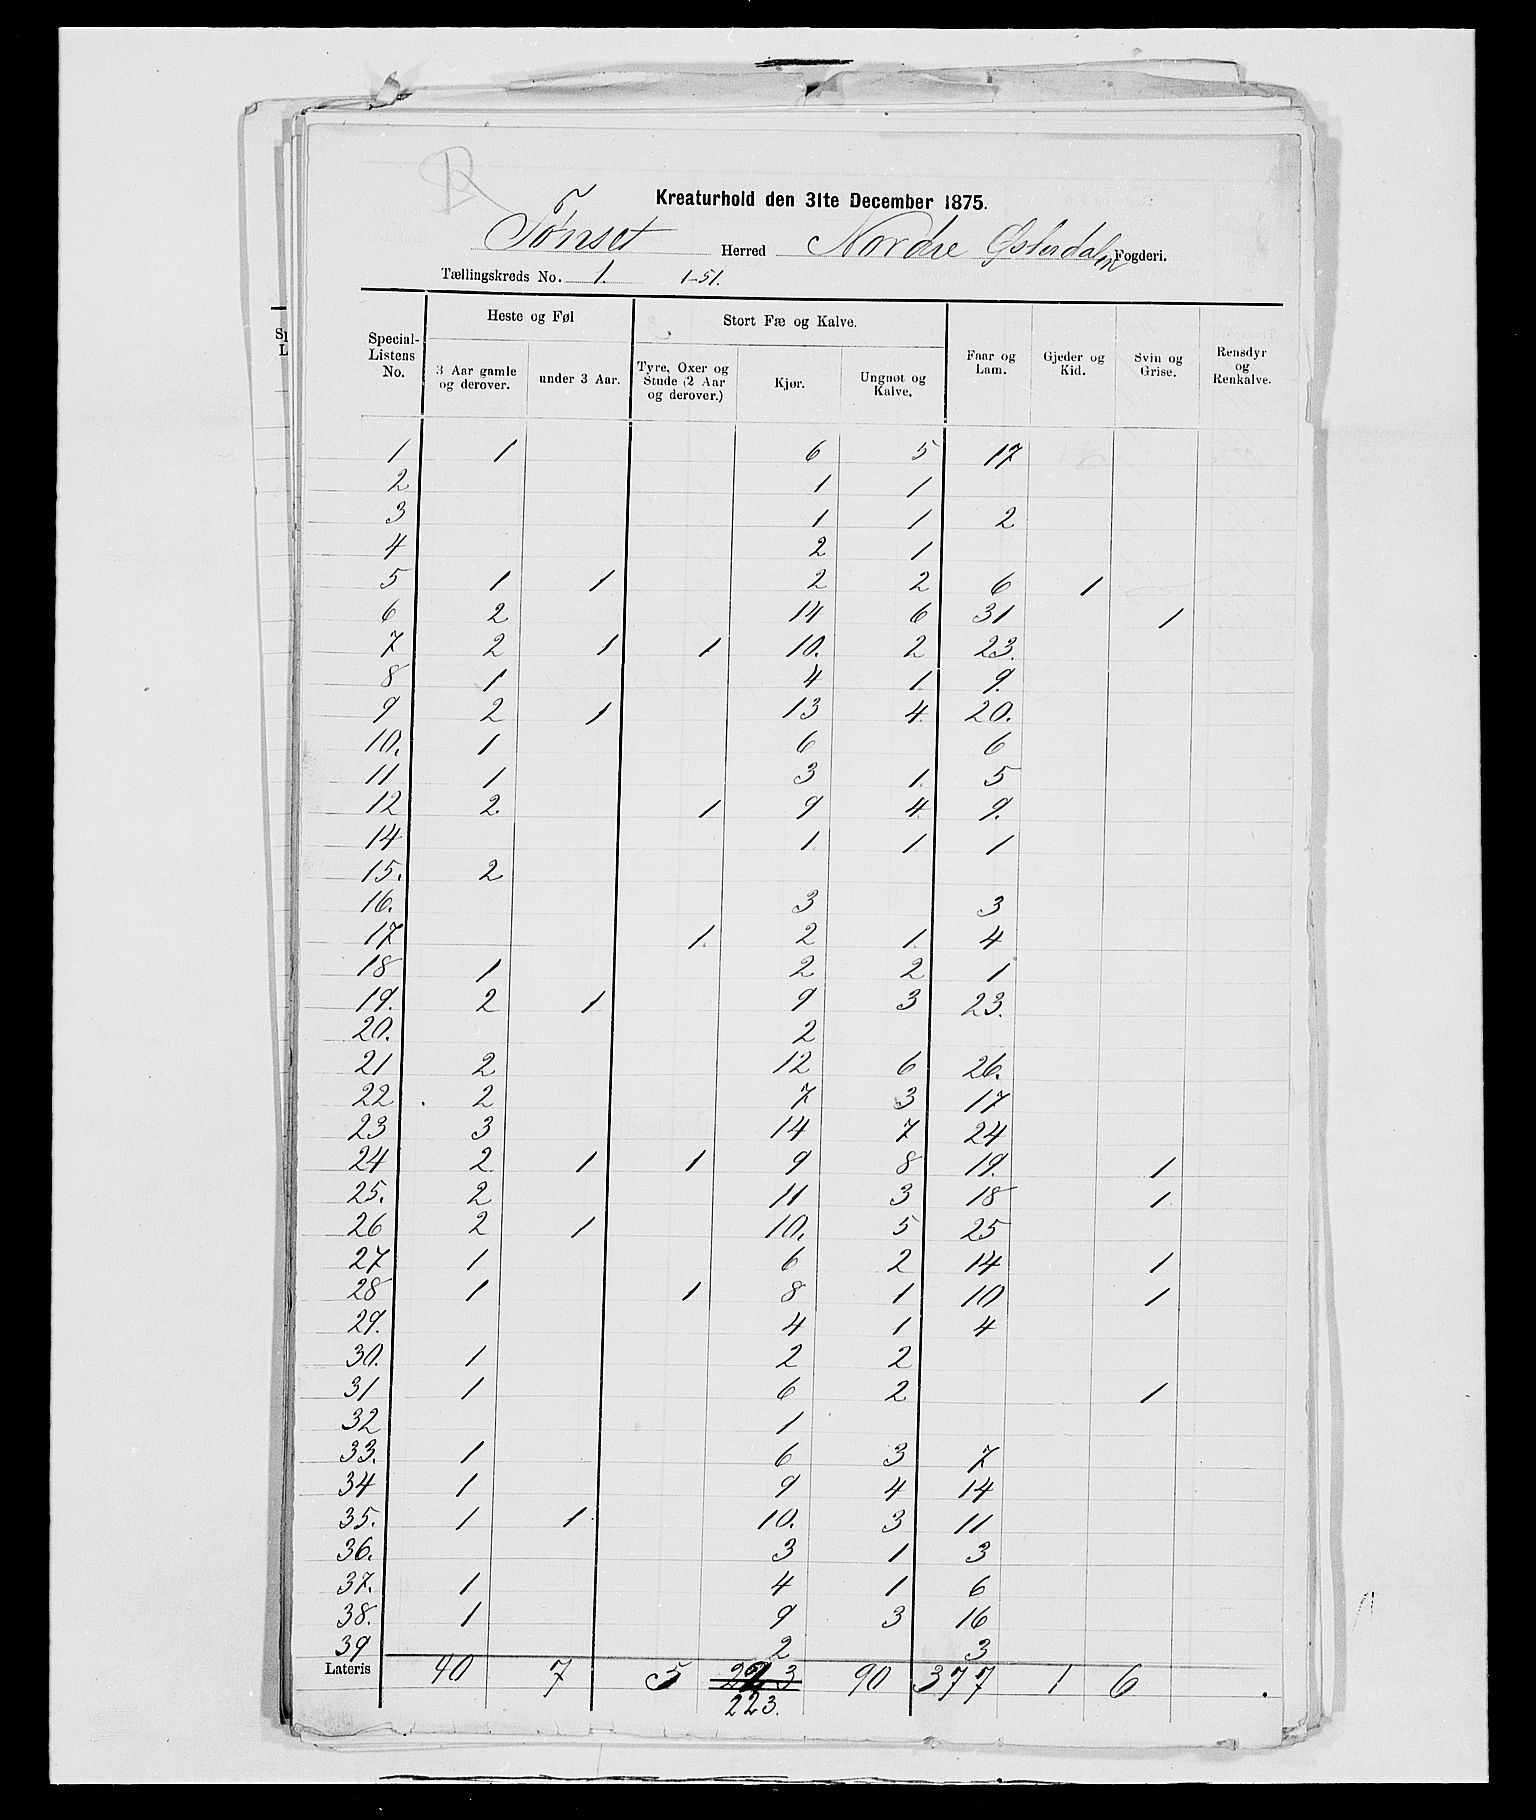 Kreaturhold den 31te December 1875.
Tønset Herred Nordre Østerdalen Fogderi.
Tællingskreds No. 1. 1-51.
Special-Listens No. | Heste og Føl | Stort Fæ og Kalve. | Faar og Lam. | Gjeder og Kid. | Svin og Grise. | Rensdyr og Renkalve.
3 Aar gamle og derover. | under 3 Aar. | Tyre, Oxer og Stude (2 Aar og derover.) | Kjør. | Ungnøt og Kalve.
1 | 1 | | | 6 | 5 | 17 | | |
2 | | | | 1 | 1 | | | |
3 | | | | 1 | 1 | 2 | | |
4 | | | | 2 | 1 | | | |
5 | 1 | 1 | | 2 | 2 | 6 | 1 | |
6 | 2 | | | 14 | 6 | 31 | | 1 |
7 | 2 | 1 | 1 | 10. | 2 | 23. | | |
8 | 1 | | | 4 | 1. | 9. | | |
9 | 2 | 1 | | 13 | 4 | 20. | | |
10. | 1 | | | 6 | | 6 | | |
11 | 1 | | | 3 | 1. | 5 | | |
12 | 2 | | 1 | 9 | 4 | 9. | | |
14 | | | | 1. | 1 | 1 | | |
15. | 2 | | | | | | | |
16. | | | | 3 | | 3 | | |
17 | | | 1. | 2 | 1. | 4 | | |
18 | 1 | | | 2 | 2 | 1 | | |
19. | 2 | 1 | | 9 | 3 | 23. | | |
20. | | | | 2 | | | | |
21 | 2 | | | 12 | 6 | 26. | | |
22 | 2 | | | 7 | 3 | 17 | | |
23 | 3 | | | 14 | 7 | 24 | | |
24 | 2 | 1 | 1 | 9 | 8 | 19. | | 1 |
25. | 2 | | | 11 | 3 | 18 | | 1 |
26 | 2 | 1 | | 10. | 5 | 25 | | |
27 | 1 | | | 6 | 2 | 14 | | 1 |
28 | 1 | | 1 | 8 | 1 | 10 | | 1 |
29. | | | | 4 | 1 | 4 | | |
30. | 1 | | | 2 | 2 | | | |
31 | 1 | | | 6 | 2 | | | 1 |
32 | | | | 1 | | | | |
33. | 1 | | | 6 | 3 | 7 | | |
34 | 1 | | | 9 | 4 | 14 | | |
35. | 1 | 1 | | 10. | 3 | 11 | | |
36. | | | | 3 | 1 | 3 | | |
37. | 1 | | | 4 | 1 | 6 | | |
38. | 1 | | | 9 | 3 | 16 | | |
39 | | | | 2 | | 3 | | |
Lateris | 40 | 7 | 5 | 223 | 90 | 377 | 1 | 6 | .
223.